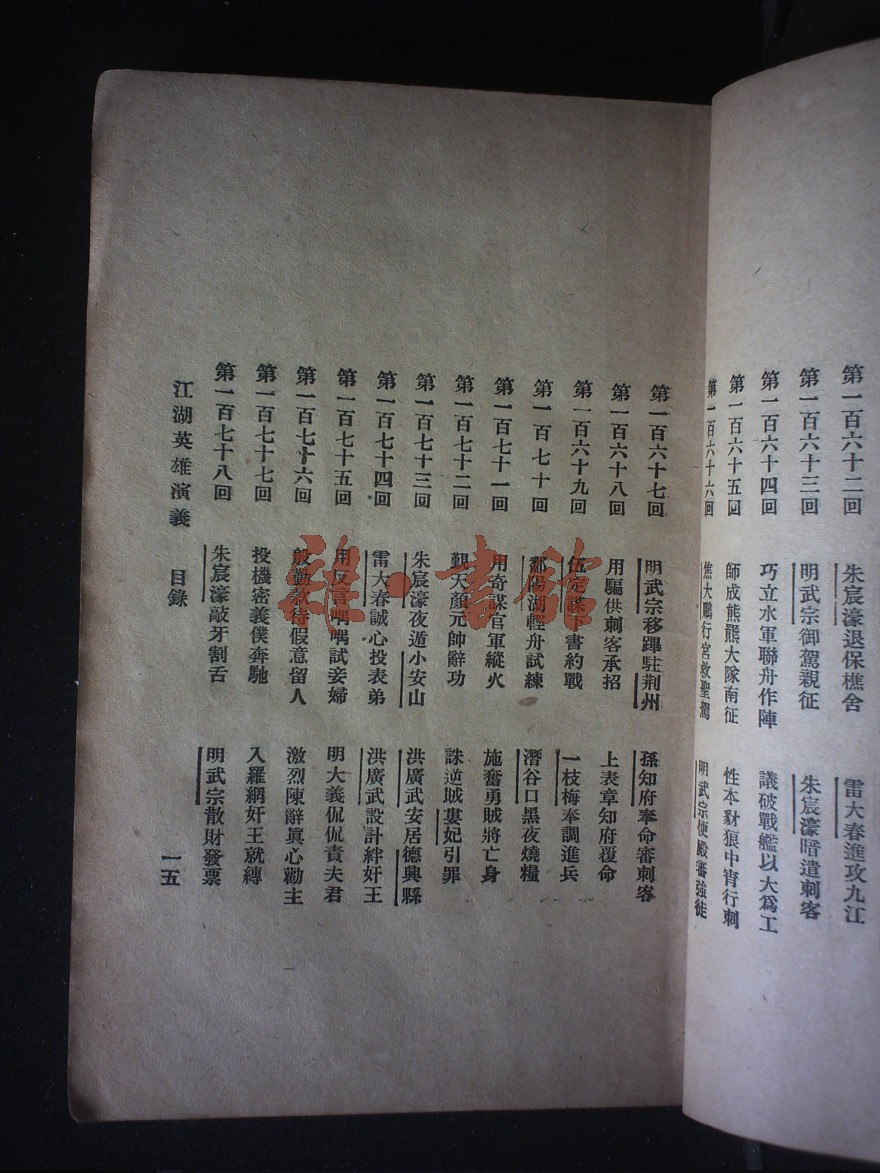 第一百六十二回 朱宸濠退保樵舍 雷大春進攻九江
第一百六十三回 明武宗御駕親征 朱宸濠暗遣刺客
第一百六十四回 巧立水軍聯舟作陣 議破戰艦以大爲工
第一百六十五回 師成熊羆大隊南征 性本豺狼中宵行刺
第一百六十六回 焦大鵬行宮救聖駕 明武宗便殿審強徒
第一百六十七回 明武宗移蹕駐荆州 孫知府奉命審刺客
第一百六十八回 用騙供刺客承招 上表章知府覆命
第一百六十九回 伍定謀下書約戰 一枝梅奉調進兵
第一百七十回 鄱陽湖輕舟試練 潛谷口黑夜燒糧
第一百七十一回 用奇謀官軍縱火 施奮勇賊將亡身
第一百七十二回 覲天顏元帥辭功 誅逆賊婁妃引罪
第一百七十三回 朱宸濠夜遁小安山 洪廣武安居德興縣
第一百七十四回 雷大春誠心投表弟 洪廣武設計絆奸王
第一百七十五回 用反言喁喁試妾婦 明大義侃侃責夫君
第一百七十六回 殷勤款待假意留人 激烈陳辭眞心勸主
第一百七十七回 投機密義僕奔馳 入羅網奸王就縛
第一百七十八回 朱宸濠敲牙割舌 明武宗散財發票
江湖英雄演義 目錄 一五
雜·書館